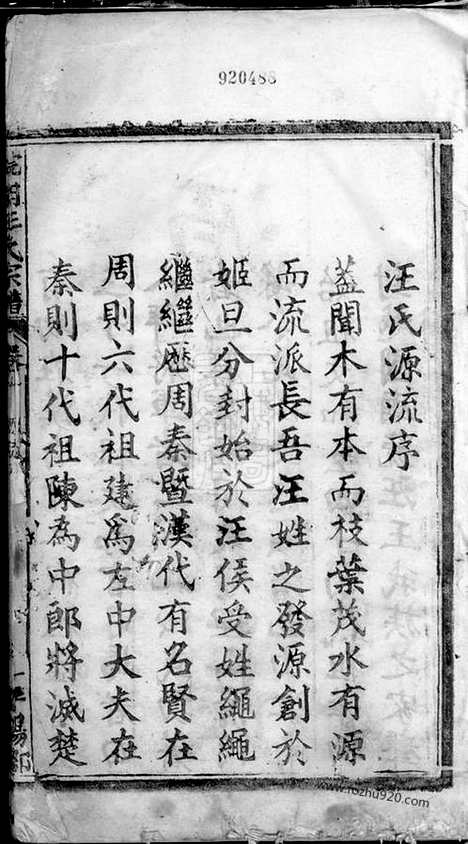 920488
汪氏源流序
蓋聞木有本而枝葉茂水有源
而流派長吾汪姓之發源創於
姬旦分封始於汪侯受姓繩繩
繼繼歷周秦暨漢代有名賢在
周則六代祖建為左中大夫在
秦則十代祖陳為中郎將滅楚
氏宗譜
平陽郡
www.rozhu920.com